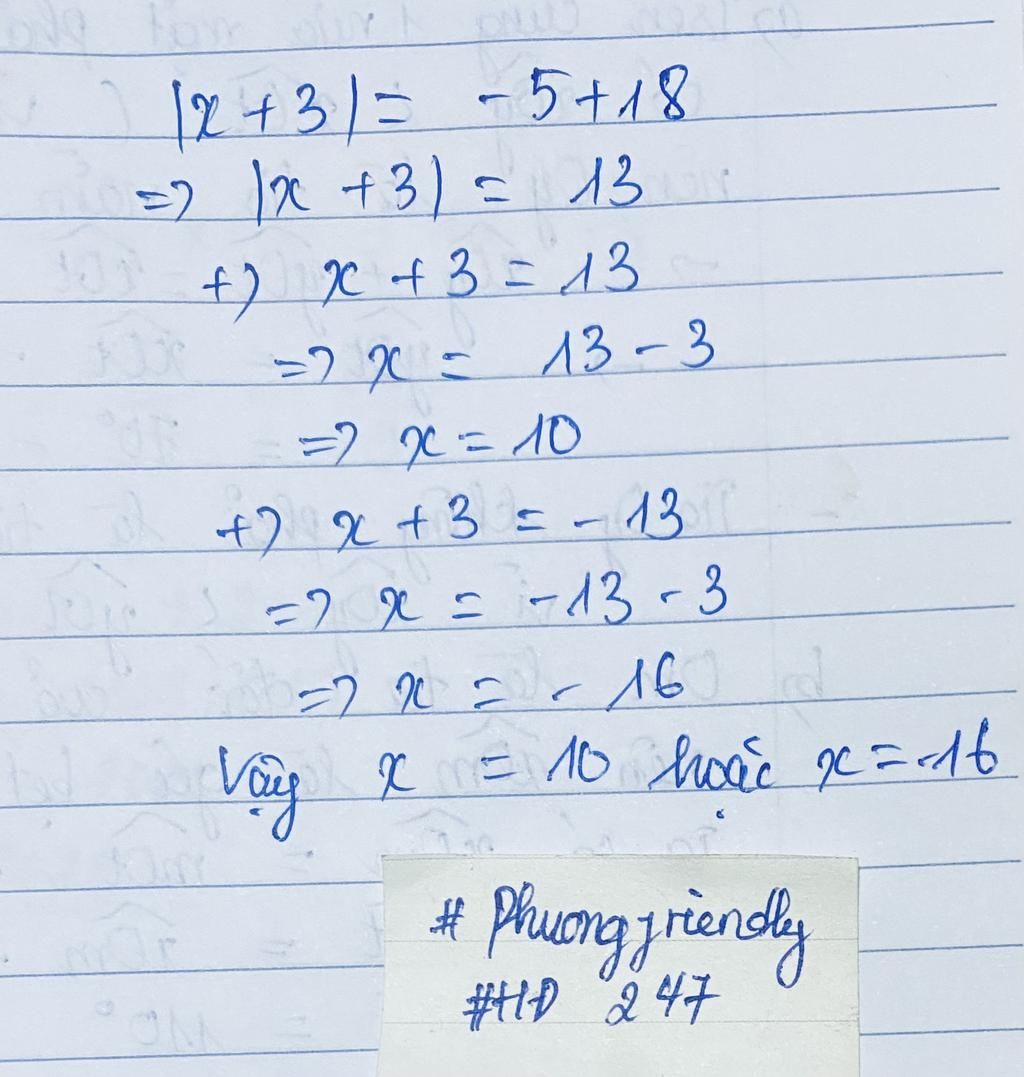 |x + 3| = -5 + 18
=> |x + 3| = 13
+) x + 3 = 13
=> x = 13 - 3
=> x = 10
+) x + 3 = -13
=> x = -13 - 3
=> x = -16
Vậy x = 10 hoặc x = -16
# Phuongfriendly
#HD 247